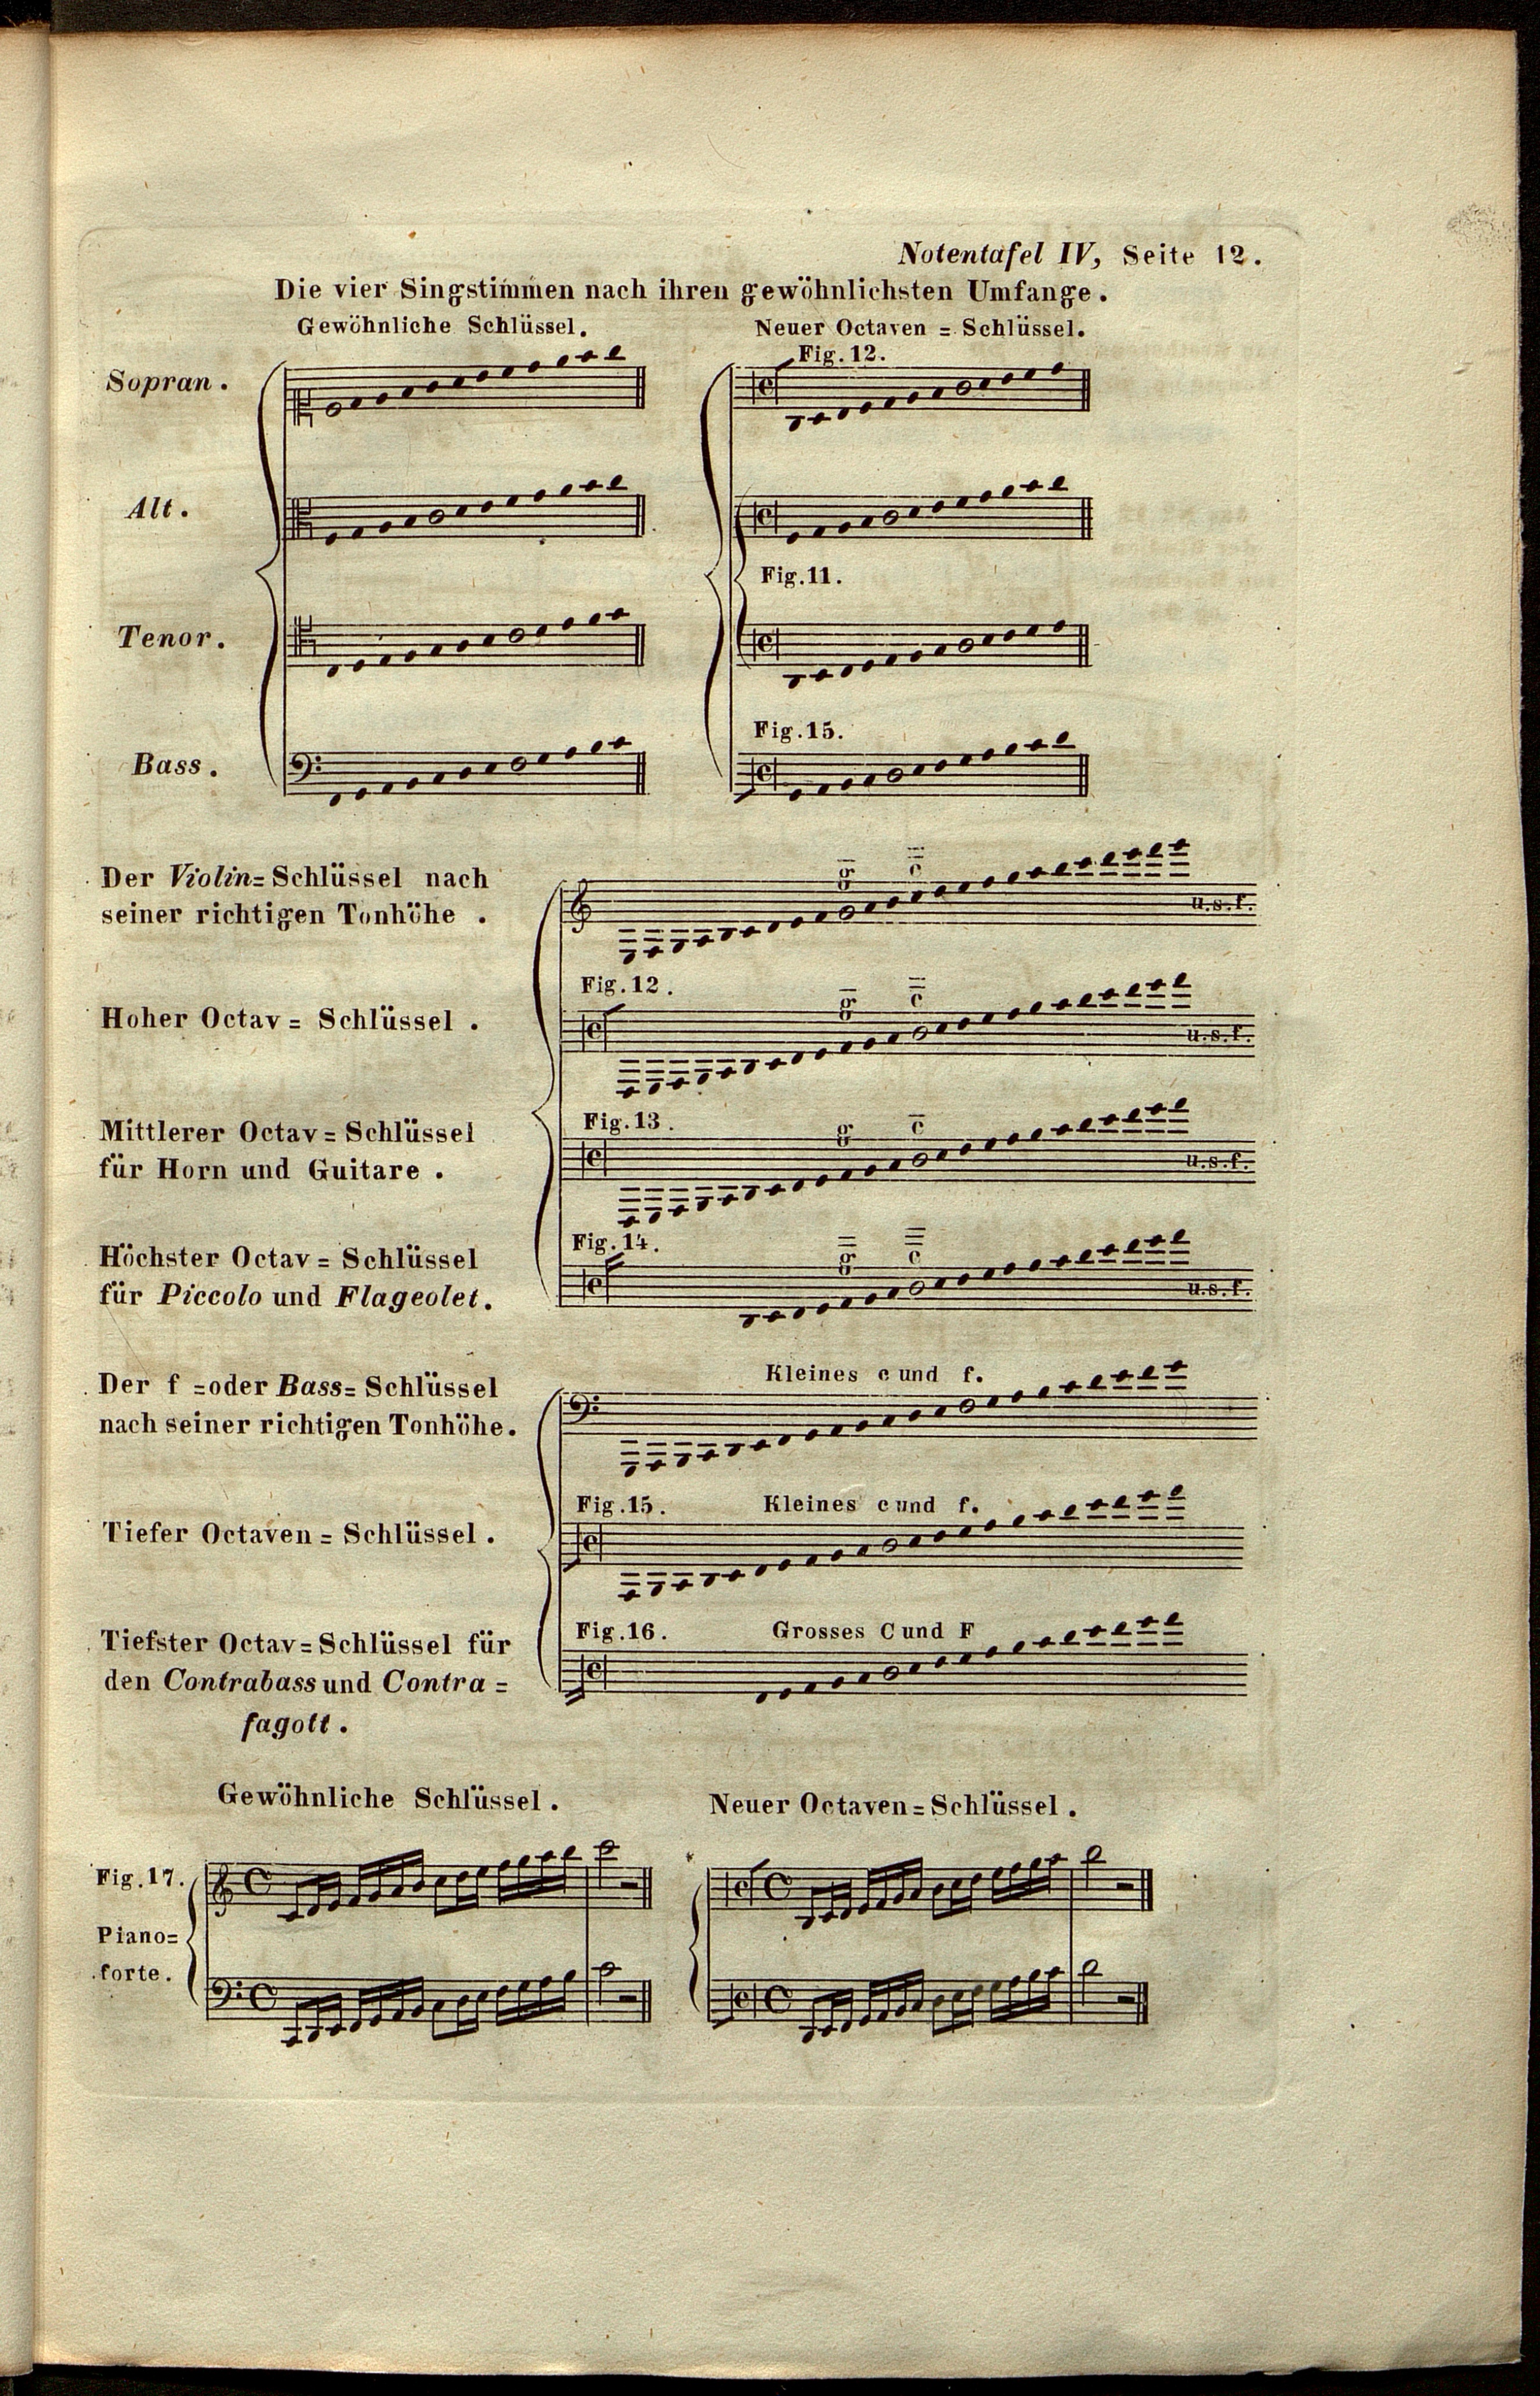 Notentafel IV, Seite 12.
Die vier Singstimmen nach ihren gewöhnlichsten Umfange.
Gewöhnliche Schlüssel.
Neuer Octaven = Schlüssel.
Fig. 12.
Sopran.
Alt.
Fig. 11.
Tenor.
Fig. 15.
Bass.
Der Violin= Schlüssel nach
seiner richtigen Tonhöhe .
g c
u.s.f.
Fig. 12.
g c
Hoher Octav = Schlüssel .
u.s.f.
Fig. 13.
g c
Mittlerer Octav = Schlüssel
für Horn und Guitare .
u.s.f.
Fig. 14.
g c
Höchster Octav = Schlüssel
für Piccolo und Flageolet.
u.s.f.
Kleines c und f.
Der f =oder Bass= Schlüssel
nach seiner richtigen Tonhöhe.
Fig. 15. Kleines c und f.
Tiefer Octaven = Schlüssel .
Fig. 16. Grosses C und F
Tiefster Octav= Schlüssel für
den Contrabass und Contra =
fagott .
Gewöhnliche Schlüssel .
Neuer Octaven = Schlüssel .
Fig. 17.
Piano=
forte.